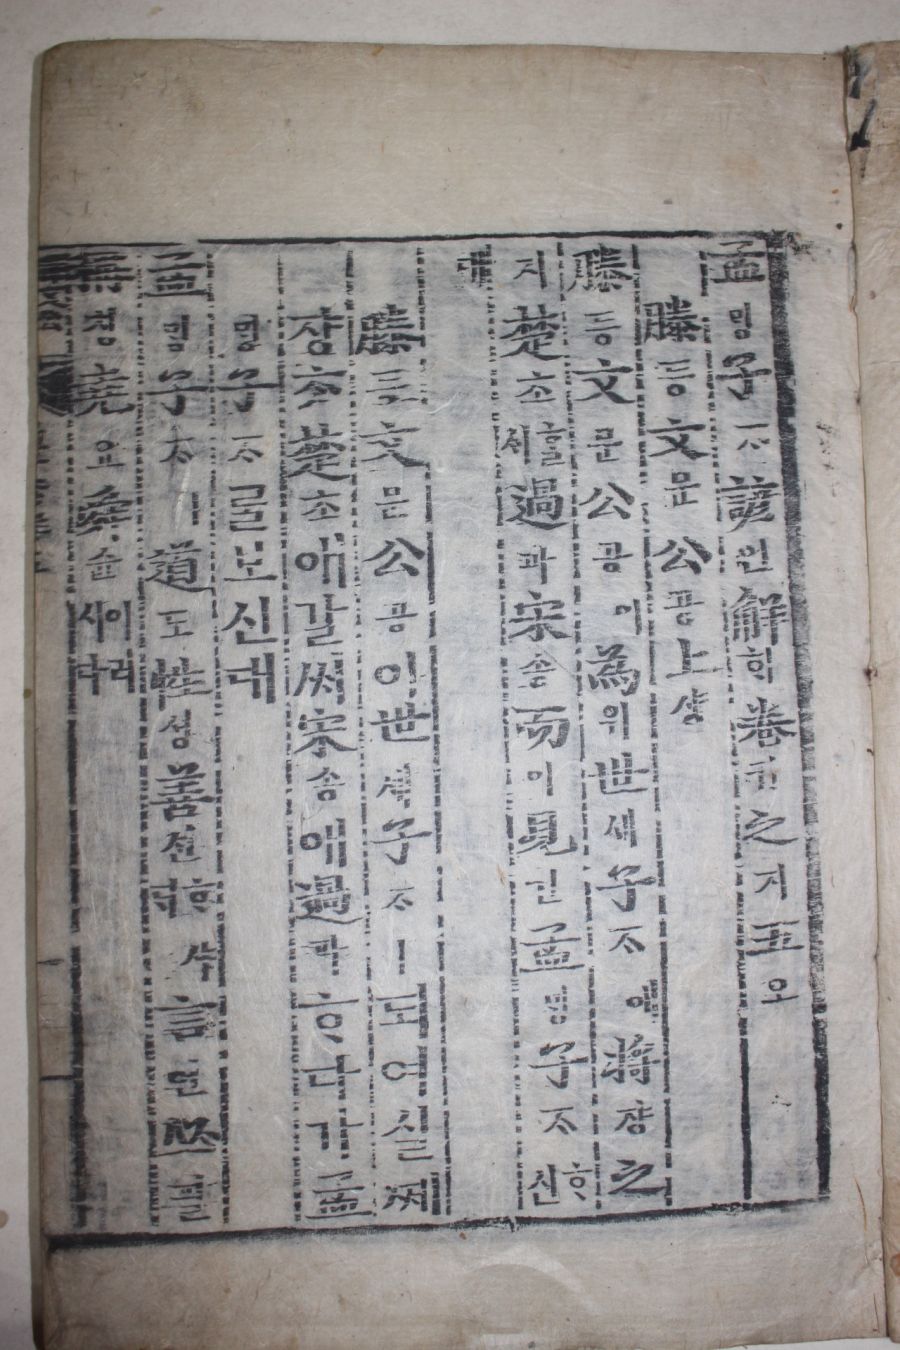 孟ᄆᆡᆼ子ᄌᆞ諺언解ᄒᆡ卷권之지五오
滕등文문公공上샹
滕등文문公공이爲위世셰子ᄌᆞ에將쟝之
지楚초ᄒᆞᆯ셰過과宋송而이見견孟ᄆᆡᆼ子ᄌᆞᄒᆞ신
대
滕등文문公공이世셰子ᄌᆞㅣ도여실ᄢᅴ
쟝ᄎᆞᆺ楚초애갈ᄉᆡ宋송애過과ᄒᆞ다가孟
ᄆᆡᆼ子ᄌᆞᄅᆞᆯ보신대
孟ᄆᆡᆼ子ᄌᆞㅣ道도性셩善션ᄒᆞ샤ᄃᆡ言언必필
稱칭堯요舜슌이러시다